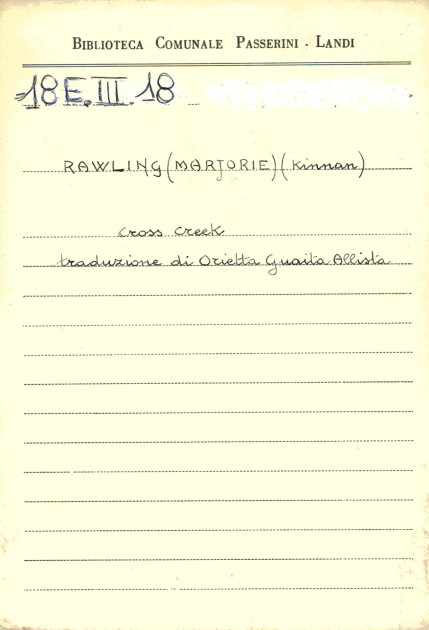 BIBLIOTECA COMUNALE PASSERINI - LANDI
18 E. III. 18
RAWLING (MARJORIE) (Kinnan)
Cross Creek
traduzione di Orietta Guaita Allista